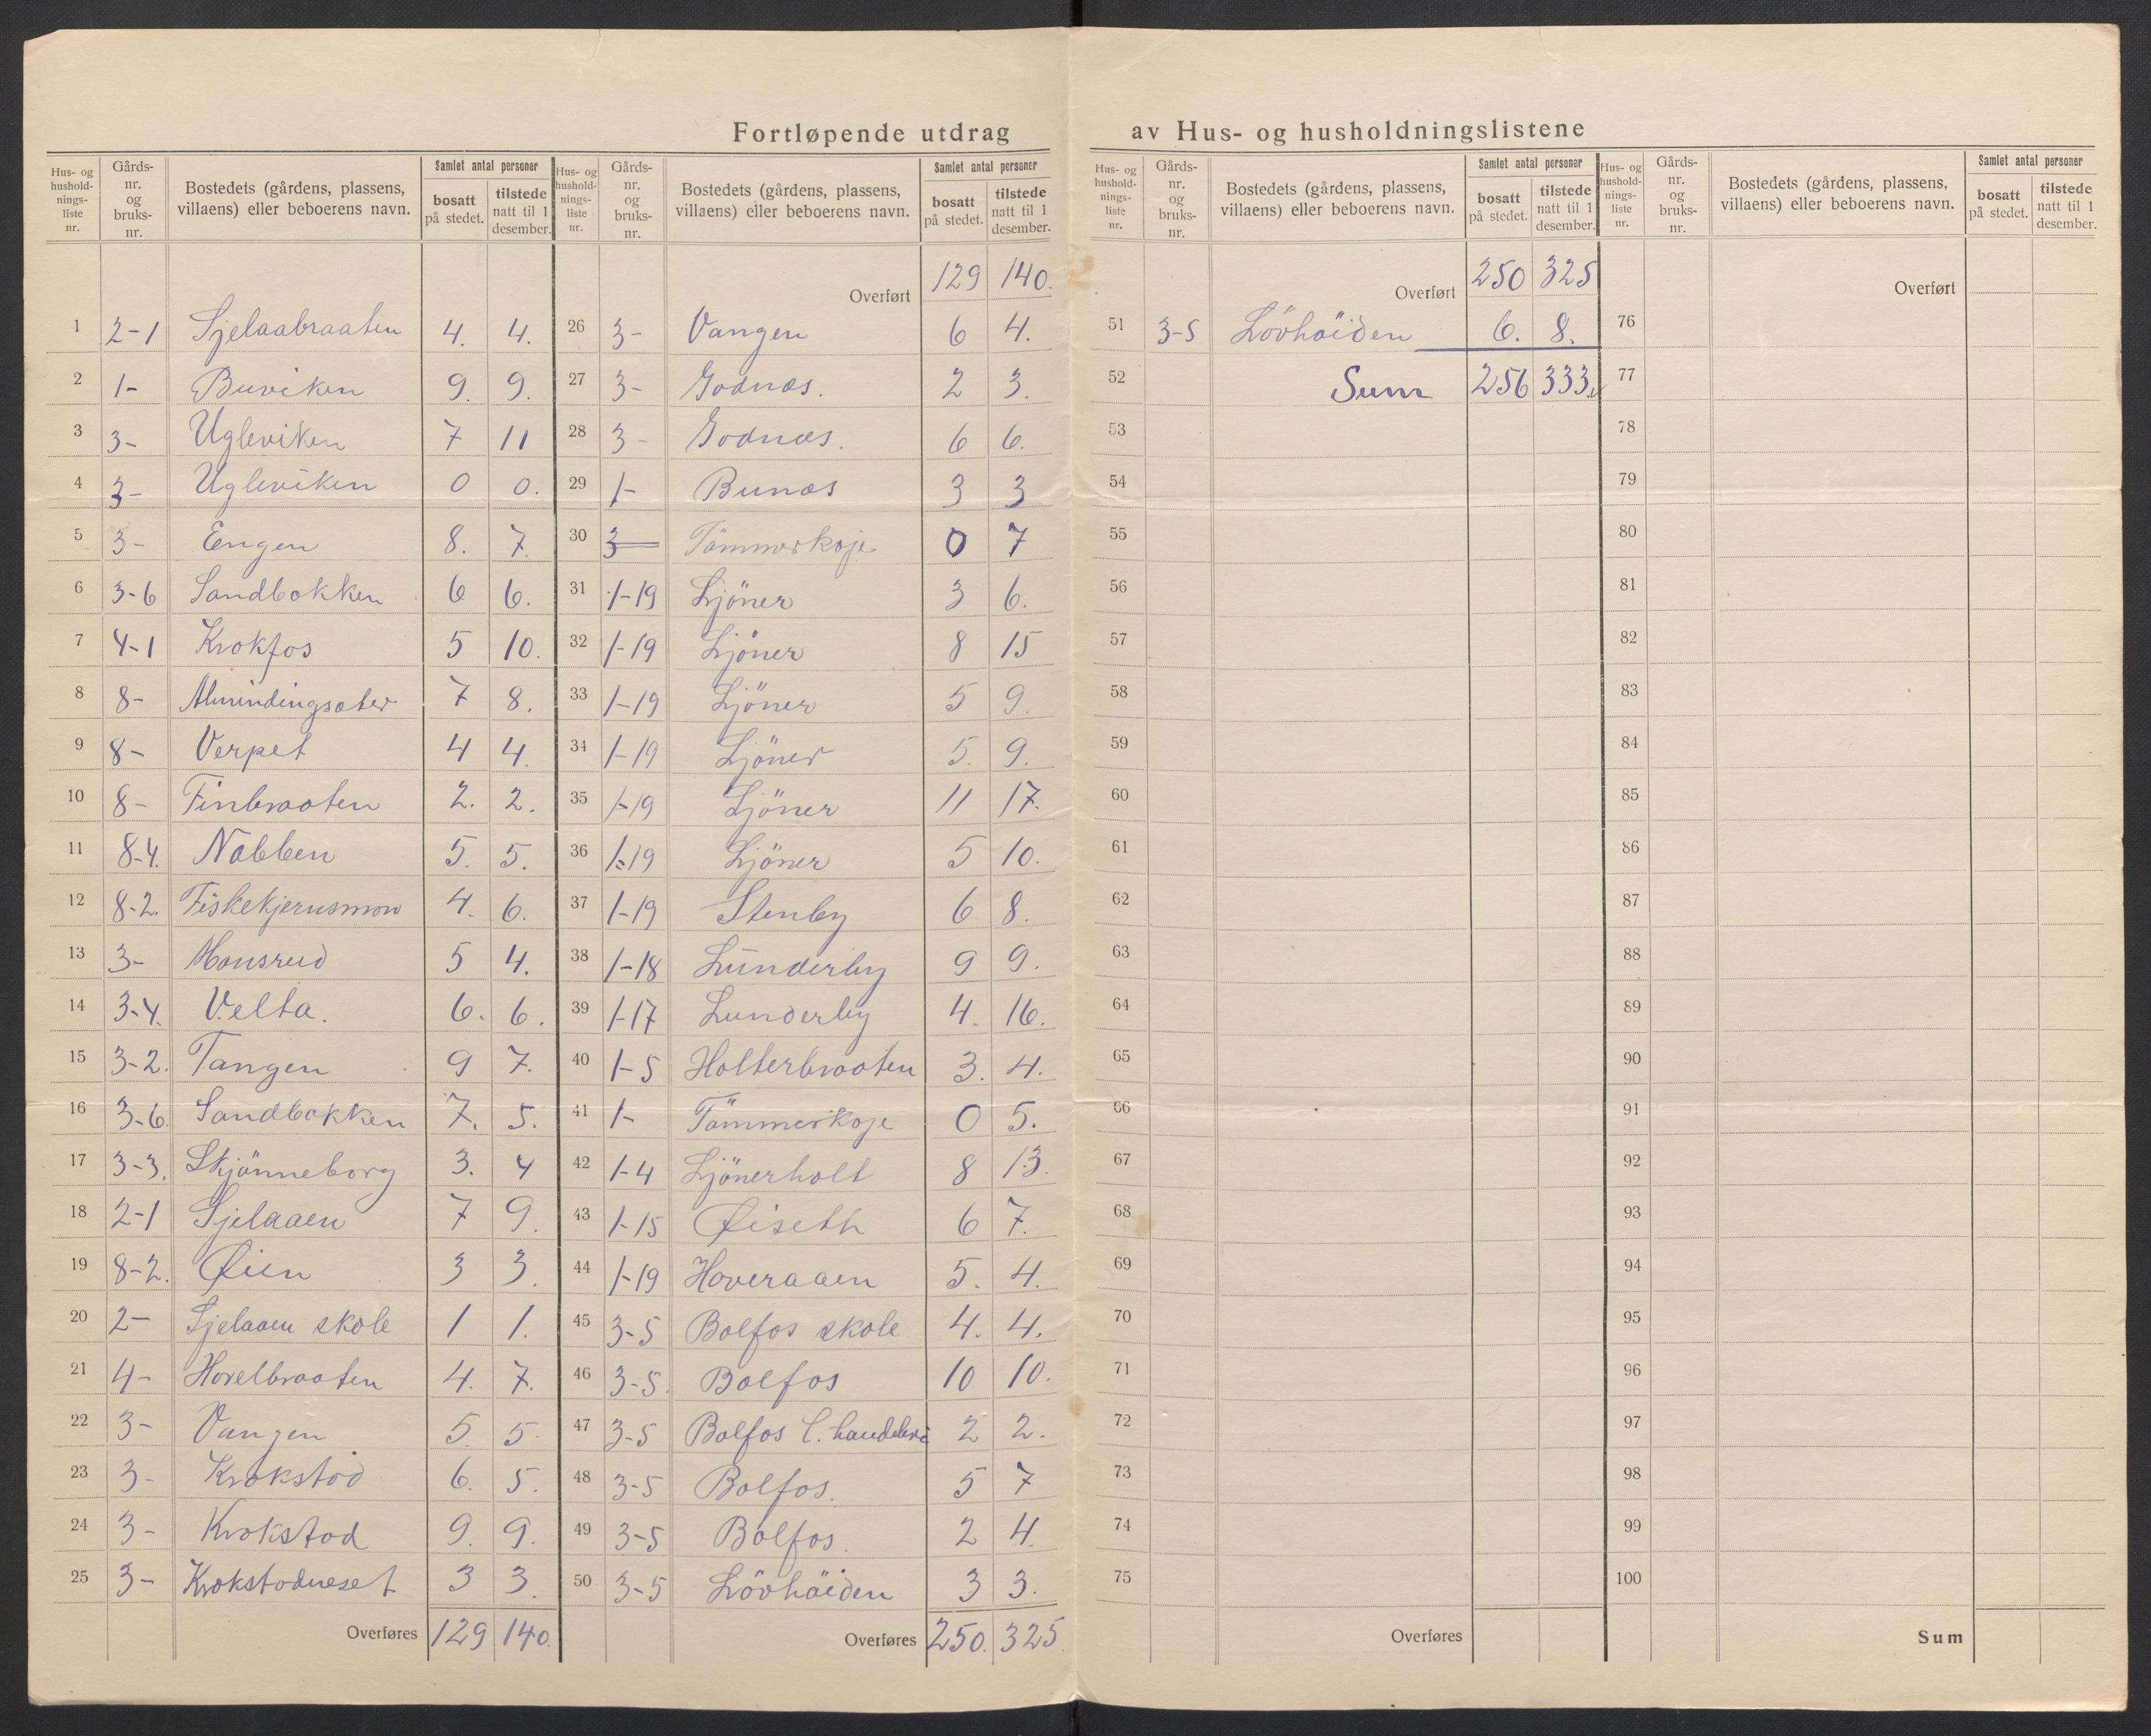 Fortløpende utdrag av Hus- og husholdningslistene
Hus- og hushold-nings-liste nr. Gårds-nr. og bruks-nr. Bostedets (gårdens, plassens, villaens) eller beboerens navn. Samlet antal personer bosatt på stedet. tilstede natt til 1 desember.
1 2-1 Sjelaabraaten 4. 4.
2 1- Buviken 9. 9.
3 3- Ugleviken 7 11
4 3- Ugleviken 0 0.
5 3- Engen 8. 7.
6 3-6 Sandbakken 6 6.
7 4-1 Krokfos 5 10.
8 8- Almindingsæter 7 8.
9 8- Verpet 4 4.
10 8- Finbraaten 2. 2.
11 8-4. Nabben 5. 5.
12 8-2. Fiskekjerusmon 4. 6.
13 3- Monsrud 5 4.
14 3-4. Velta. 6. 6.
15 3-2. Tangen 9 7.
16 3-6. Sandbakken 7. 5.
17 3-3. Skjönneborg 3. 4
18 2-1 Sjelaaen 7 9.
19 8-2. Øien 3 3.
20 2- Sjelaaen skole 1 1.
21 4- Hovelbraaten 4. 7.
22 3- Vangen 5. 5.
23 3- Krokstad 6. 5.
24 3- Krokstad 9. 9.
25 3- Krokstadneset 3 3.
Overføres 129 140.
Hus- og hushold-nings-liste nr. Gårds-nr. og bruks-nr. Bostedets (gårdens, plassens, villaens) eller beboerens navn. Samlet antal personer bosatt på stedet. tilstede natt til 1 desember.
Overført 129 140.
26 3- Vangen 6 4.
27 3- Godnæs. 2 3.
28 3- Godnæs. 6 6.
29 1- Bunæs 3 3
30 3- Tömmerkoje 0 7
31 1-19 Ljöner 3 6.
32 1-19 Ljöner 8 15
33 1-19 Ljöner 5 9.
34 1-19 Ljöner 5. 9.
35 1-19 Ljöner 11 17.
36 1-19 Ljöner 5 10.
37 1-19 Stenby 6 8.
38 1-18 Lunderby 9 9.
39 1-17 Lunderby 4. 16.
40 1-5 Holterbraaten 3. 4.
41 1- Tömmerkoje 0 5.
42 1-4 Ljönerholt 8 13.
43 1-15 Øiseth 6 7.
44 1-19 Hoveraaen 5. 4.
45 3-5 Bolfos skole 4. 4.
46 3-5. Bolfos 10 10.
47 3-5 Bolfos 2 2.
48 3-5 Bolfos. 5 7
49 3-5 Bolfos. 2 4.
50 3-5 Lövhöiden 3 3.
Overføres 250. 325.
Hus- og hushold-nings-liste nr. Gårds-nr. og bruks-nr. Bostedets (gårdens, plassens, villaens) eller beboerens navn. Samlet antal personer bosatt på stedet. tilstede natt til 1 desember.
Overført 250 325
51 3-5 Lövhöiden 6. 8.
52 Sum 256 333.
53
54
55
56
57
58
59
60
61
62
63
64
65
66
67
68
69
70
71
72
73
74
75
Overføres
Hus- og hushold-nings-liste nr. Gårds-nr. og bruks-nr. Bostedets (gårdens, plassens, villaens) eller beboerens navn. Samlet antal personer bosatt på stedet. tilstede natt til 1 desember.
Overført
76
77
78
79
80
81
82
83
84
85
86
87
88
89
90
91
92
93
94
95
96
97
98
99
100
Sum